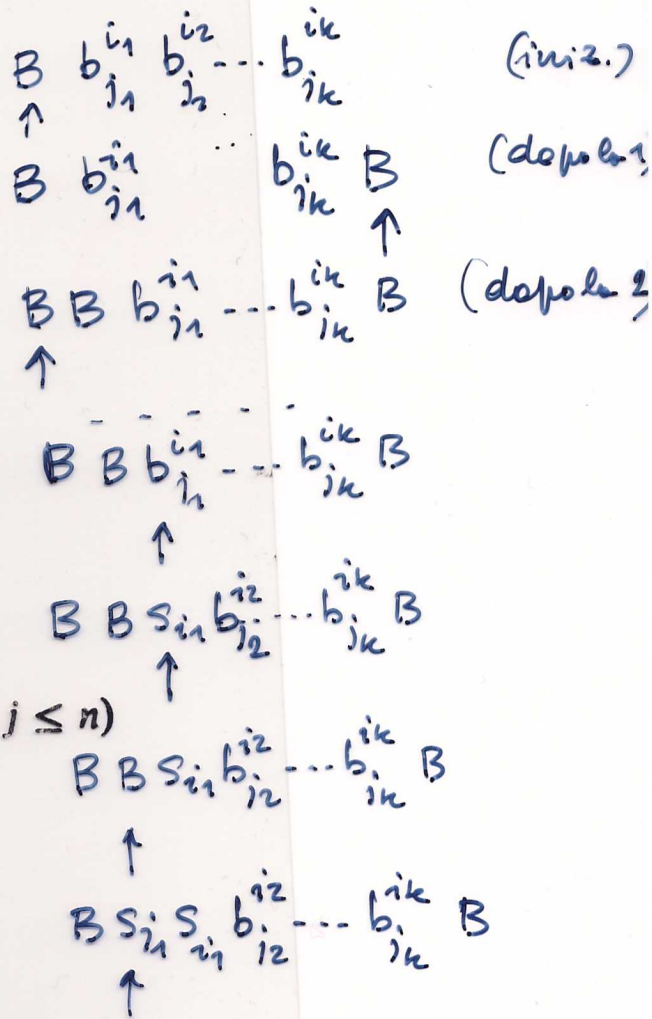 B b^{i1}_{j1} b^{i2}_{j2} --- b^{ik}_{jk} (iniz.)
↑
B b^{i1}_{j1} .. b^{ik}_{jk} B (dopo la 1
↑
B B b^{i1}_{j1} --- b^{ik}_{jk} B (dopo la 2
↑
- - - - -
B B b^{i1}_{j1} --- b^{ik}_{jk} B
↑
B B S_{i1} b^{i2}_{j2} --- b^{ik}_{jk} B
↑
j ≤ n)
B B S_{i1} b^{i2}_{j2} --- b^{ik}_{jk} B
↑
B S_{j1} S_{i1} b^{i2}_{j2} --- b^{ik}_{jk} B
↑